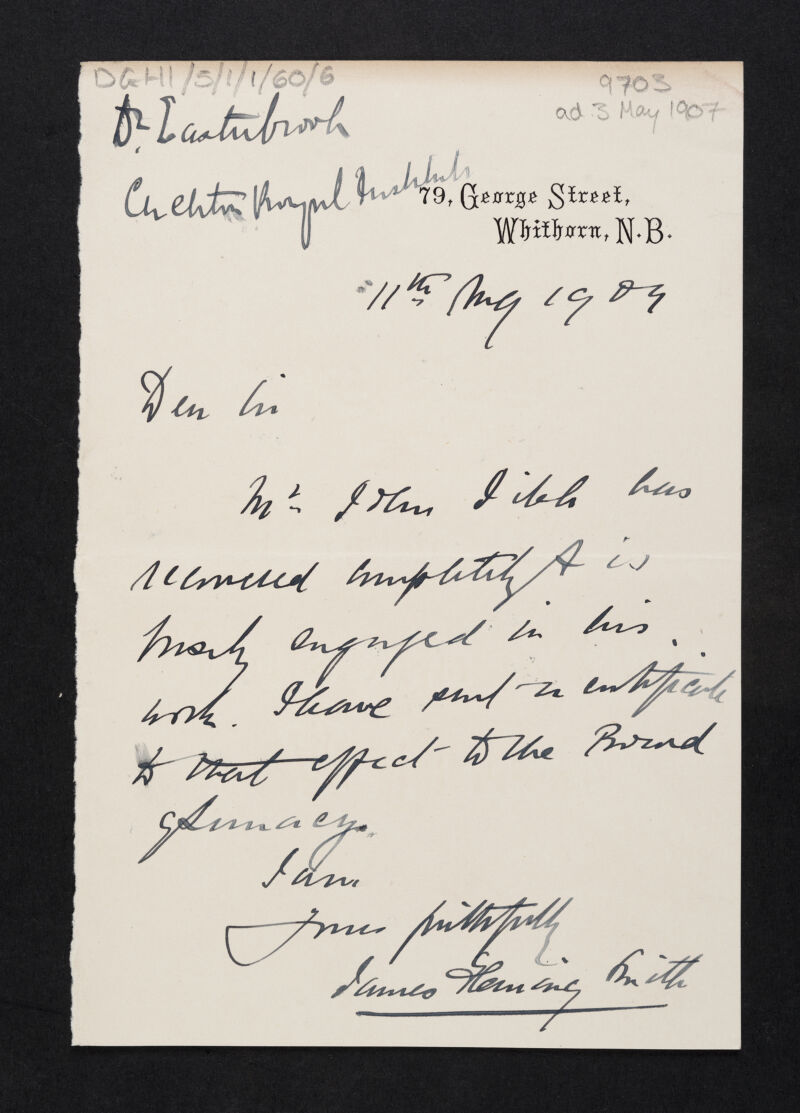 DGH1/5/1/1/60/6
9703
ad. 3 May 1907
Dr. Easterbrook
Crichton Royal Institute
79, George Street,
Whithorn, N.B.
11th Aug 1909
Dear Sir
Mr. John has
recovered completely & is
busily engaged in his
work. I have sent a certificate
to that effect to the Board
of Lunacy.
I am
Yours faithfully
James Fleming Smith